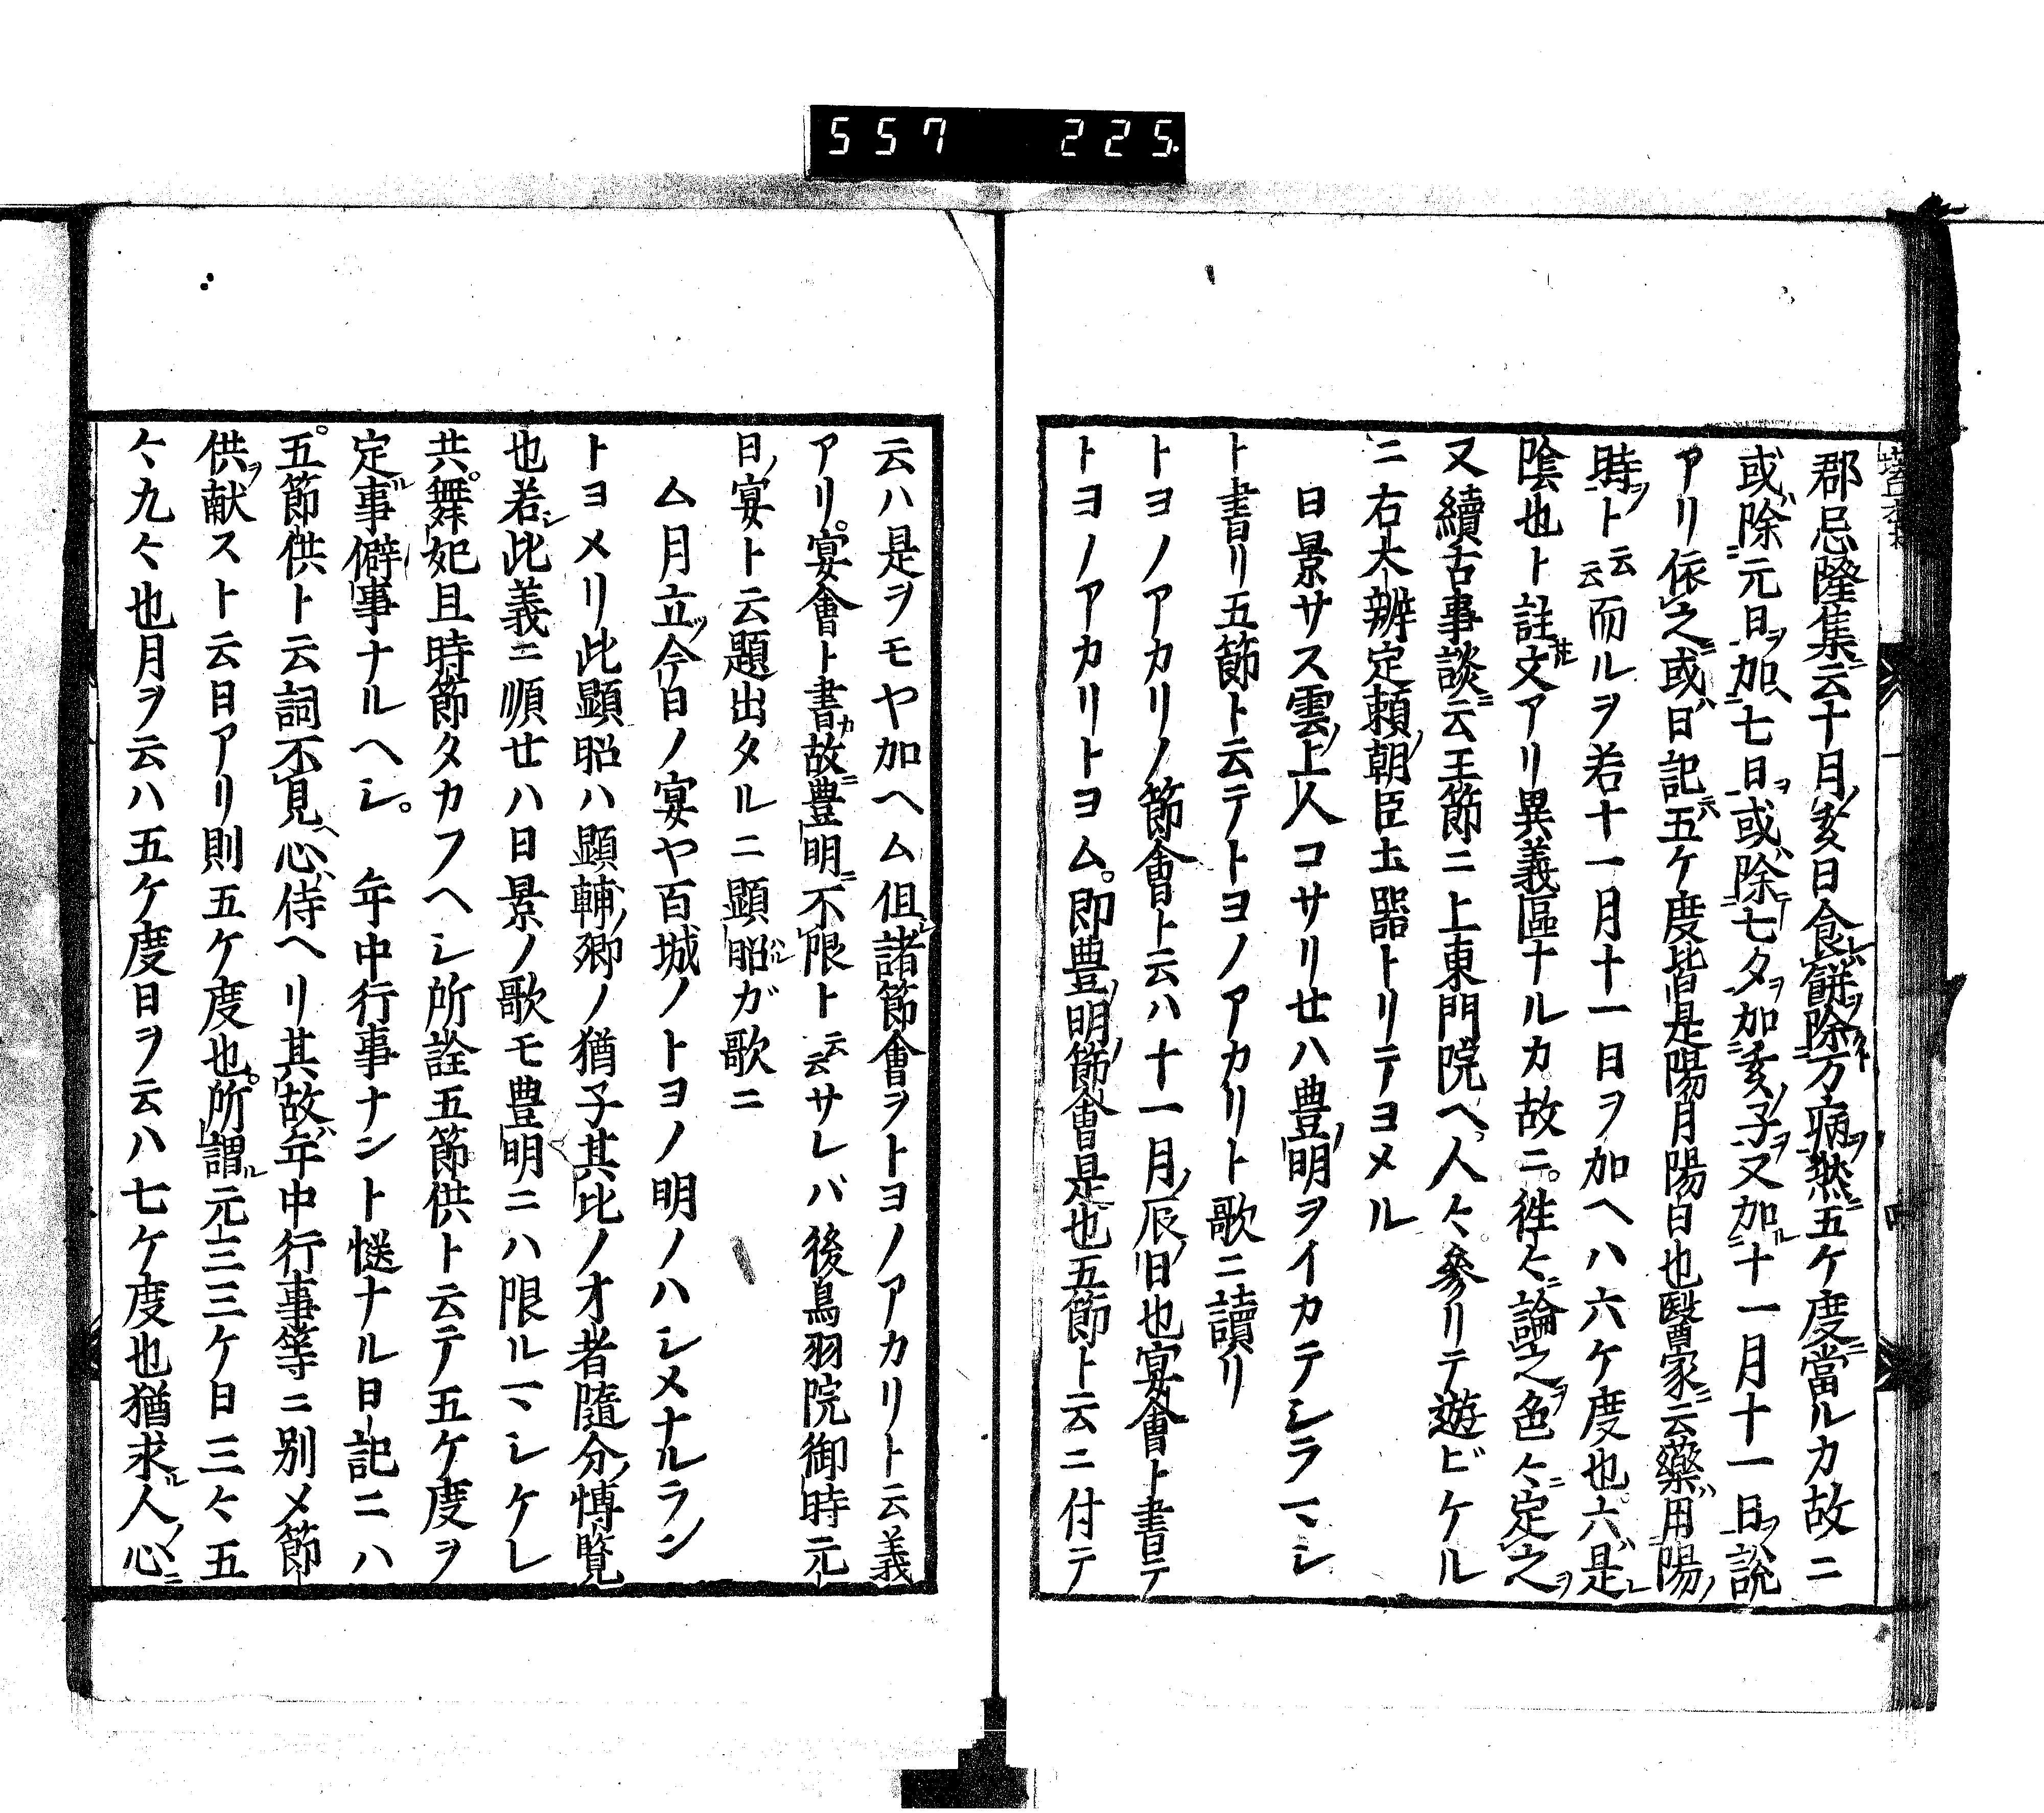 557 225.
郡忌隆集ニ云十月ノ亥日食餅ヲ除万病ヲ然ニ五ケ度ニ當ルカ故ニ
或ハ除元日ヲ加七日ヲ或ハ除七夕ヲ加亥ノ子ヲ又加ル十一月十一日ヲ説
アリ依之ニ或ハ日記ニ六五ケ度皆是陽月陽日也醫家ニ云藥ハ用陽ノ
時ヲト云云而ルヲ若十一月十一日ヲ加ヘハ六ケ度也六ハ是レ
陰也ト註セル文アリ異義區ナルカ故ニ徃々ニ論之ヲ色々ニ定之ヲ
又續古事談ニ云王節ニ上東門院ヘ人々參リテ遊ビケル
ニ右大辨定頼ノ朝臣土器トリテヨメル
日景サス雲ノ上人コサリせハ豊ノ明ヲイカテシラマシ
ト書リ五節ト云テトヨノアカリト歌ニ讀リ
トヨノアカリノ節會ト云ハ十一月ノ辰ノ日也宴會ト書テ
トヨノアカリトヨム即豊ノ明ノ節會是也五節ト云ニ付テ
云ハ是ヲモヤ加ヘム但シ諸節會ヲトヨノアカリト云義
アリ宴會ト書カ故ニ豊明ニ不限ト云云サレバ後鳥羽院御時元
日ノ宴ト云題出タルニ顯昭ガ歌ニ
ム月立ツ今日ノ宴ヤ百城ノトヨノ明ノハシメナルラン
トヨメリ此顯昭ハ顯輔ノ卿ノ猶子其比ノオ者隨分ノ博覽
也若シ此義ニ順せハ日景ノ歌モ豊明ニハ限ルマシケレ
共舞妃且時節タカフヘシ所詮五節供ト云テ五ケ度ヲ
定ル事僻事ナルヘシ 年中行事ナント慥ナル日記ニハ
五節供ト云詞不見ヘ心ハ侍ヘリ其故ハ年中行事等ニ別メ節
供ヲ献ストト云日アリ則五ケ度也所謂ル元三三ケ日三々五
々九々也月ヲ云ハ五ケ度日ヲ云ハ七ケ度也猶求ル人ノ心ニ